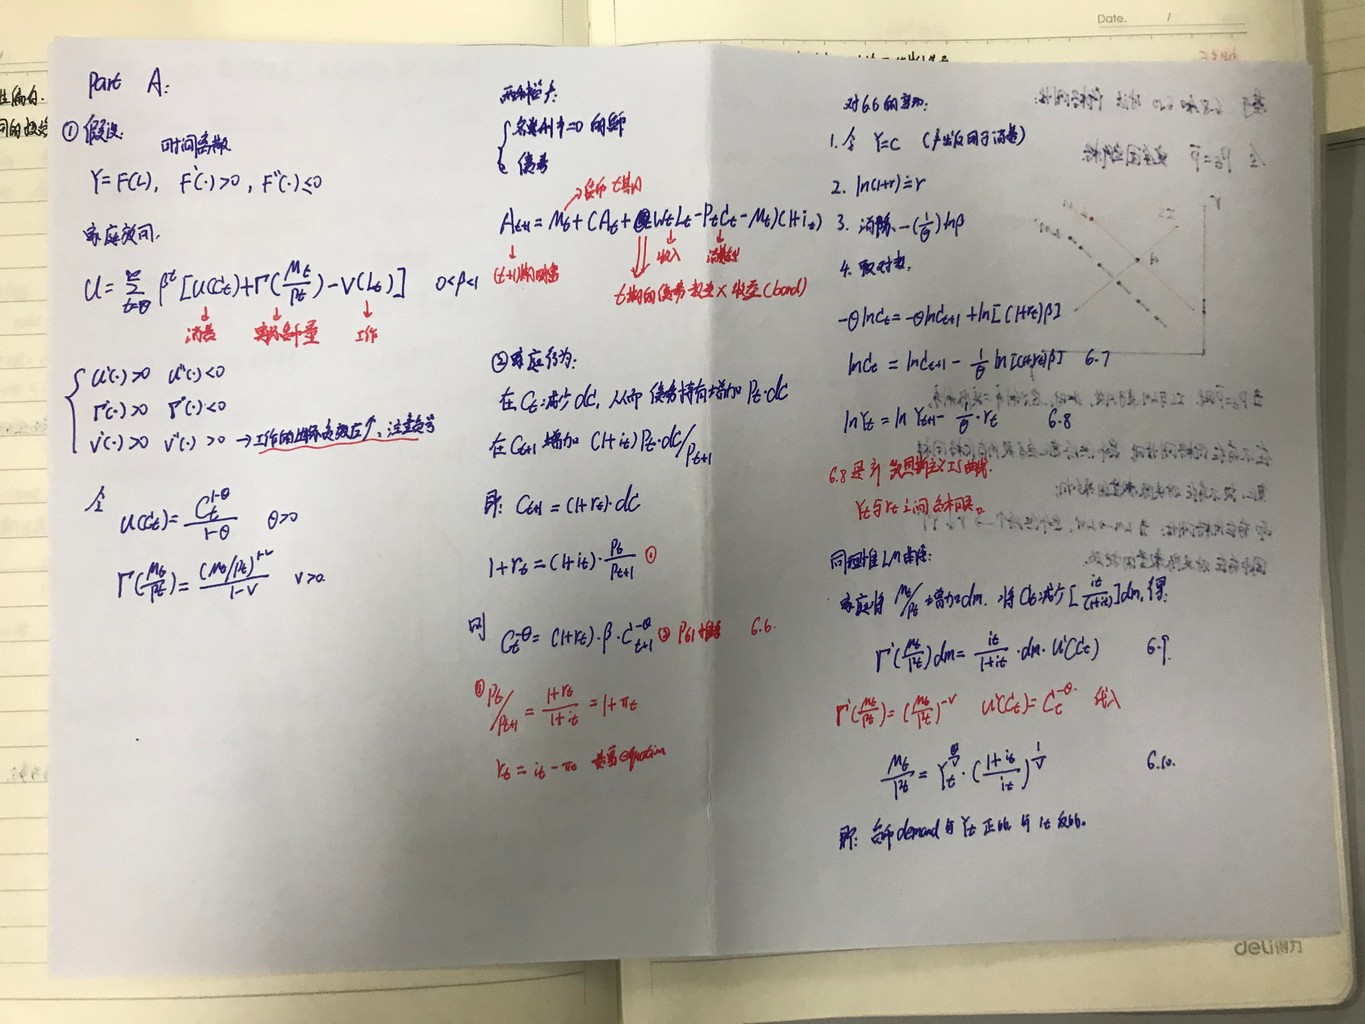 Part A:
① 假设
时间离散
Y=F(L), F'(·)>0, F''(·)≤0
家庭效用:
U = ∑ t=0 ∞ β^t [U(C_t)+Γ(M_t/P_t)-V(L_t)] 0<β<1
消费
工作
U'(·)>0 U''(·)<0
Γ'(·)>0 Γ''(·)<0
V'(·)>0 V''(·)>0 → 工作的边际负效应↑, 注意负号
令
U(C_t)= C_t^{1-θ}/(1-θ) θ>0
Γ(M_t/P_t)= (M_t/P_t)^{1-ν}/(1-ν) ν>0
两种资产:
名义利率=0 的货币
债券
货币 t期
A_{t+1}=M_t+(A_t+W_tL_t-P_tC_t-M_t)(1+i_t)
(t+1)期的财富
收入
消费支出
t期的债券数量×收益(bond)
② 家庭行为:
在C_t减少dC, 从而债券持有增加P_t·dC
在C_{t+1}增加 (1+i_t)P_t·dC/P_{t+1}
即: C_{t+1}=(1+r_t)·dC
1+r_t=(1+i_t)·P_t/P_{t+1} ①
则 C_t^{-θ}=(1+r_t)·β·C_{t+1}^{-θ} ② P61推导 6.6.
① P_t/P_{t+1} = (1+r_t)/(1+i_t) = 1+π_t
r_t = i_t-π_t 费雪equation
对6.6的变动:
1. 令 Y=C (产出仅用于消费)
2. ln(1+r)≐r
3. 消除-(1/θ)lnβ
4. 取对数,
-θlnC_t=-θlnC_{t+1}+ln[(1+r_t)β]
lnC_t = lnC_{t+1} - 1/θ ln[(1+r_t)β] 6.7
lnY_t = ln Y_{t+1} - 1/θ·r_t 6.8
6.8是新凯恩斯主义IS曲线.
Y_t与r_t之间负相关。
同理推LM曲线:
家庭将 M_t/P_t 增加dm. 将C_t减少[i_t/(1+i_t)]dm, 得:
Γ'(M_t/P_t)dm= i_t/(1+i_t)·dm·U'(C_t) 6.9.
Γ'(M_t/P_t)=(M_t/P_t)^{-ν} U'(C_t)=C_t^{-θ}. 代入
M_t/P_t = Y_t^{θ/ν}·((1+i_t)/i_t)^{1/ν} 6.10.
即: 货币demand与Y_t正比, 与i_t反比.
Date. /
deli得力